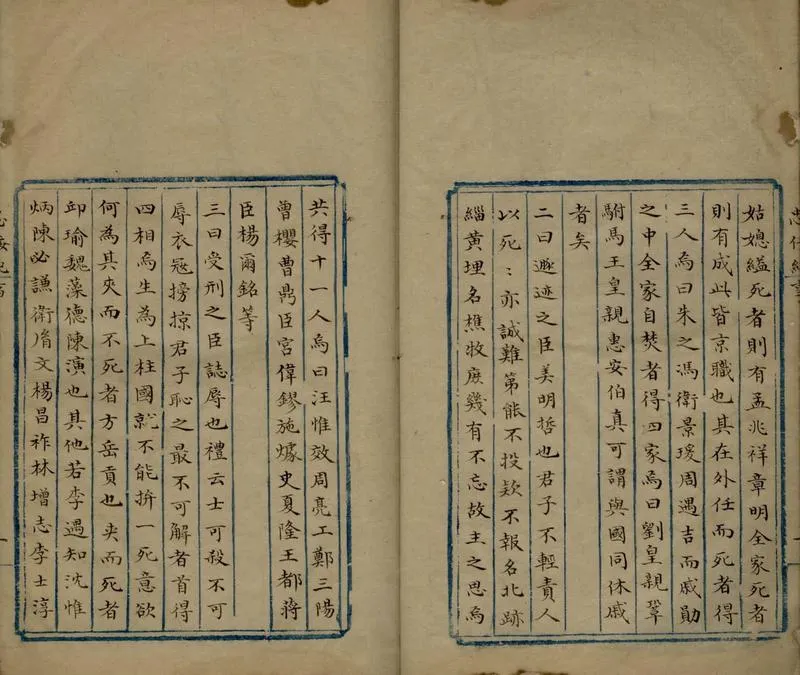 姑媳縊死者則有孟兆祥章明全家死者
則有成此皆京職也其在外任而死者得
三人焉曰朱之馮衛景瑗周遇吉而戚勛
之中全家自焚者得四家焉曰劉皇親鞏
駙馬王皇親惠安伯真可謂與國同休戚
者矣
二曰遯迹之臣美明哲也君子不輕責人
以死：亦誠難第能不投欵不報名北跡
緇黄埋名樵牧庻幾有不忘故主之思焉
共得十一人焉曰汪惟效周亮工鄭三陽
曾櫻曹鼎臣宮偉鏐施爌史夏隆王都蔣
臣楊爾銘等
三曰受刑之臣誌辱也禮云士可殺不可
辱衣冠搒掠君子恥之最不可解者首得
四相焉生為上柱國就不能拚一死意欲
何為其夾而不死者方岳貢也夾而死者
邱瑜魏藻德陳演也其他若李遇知沈惟
炳陳必謙衛胤文楊昌祚林增志李士淳